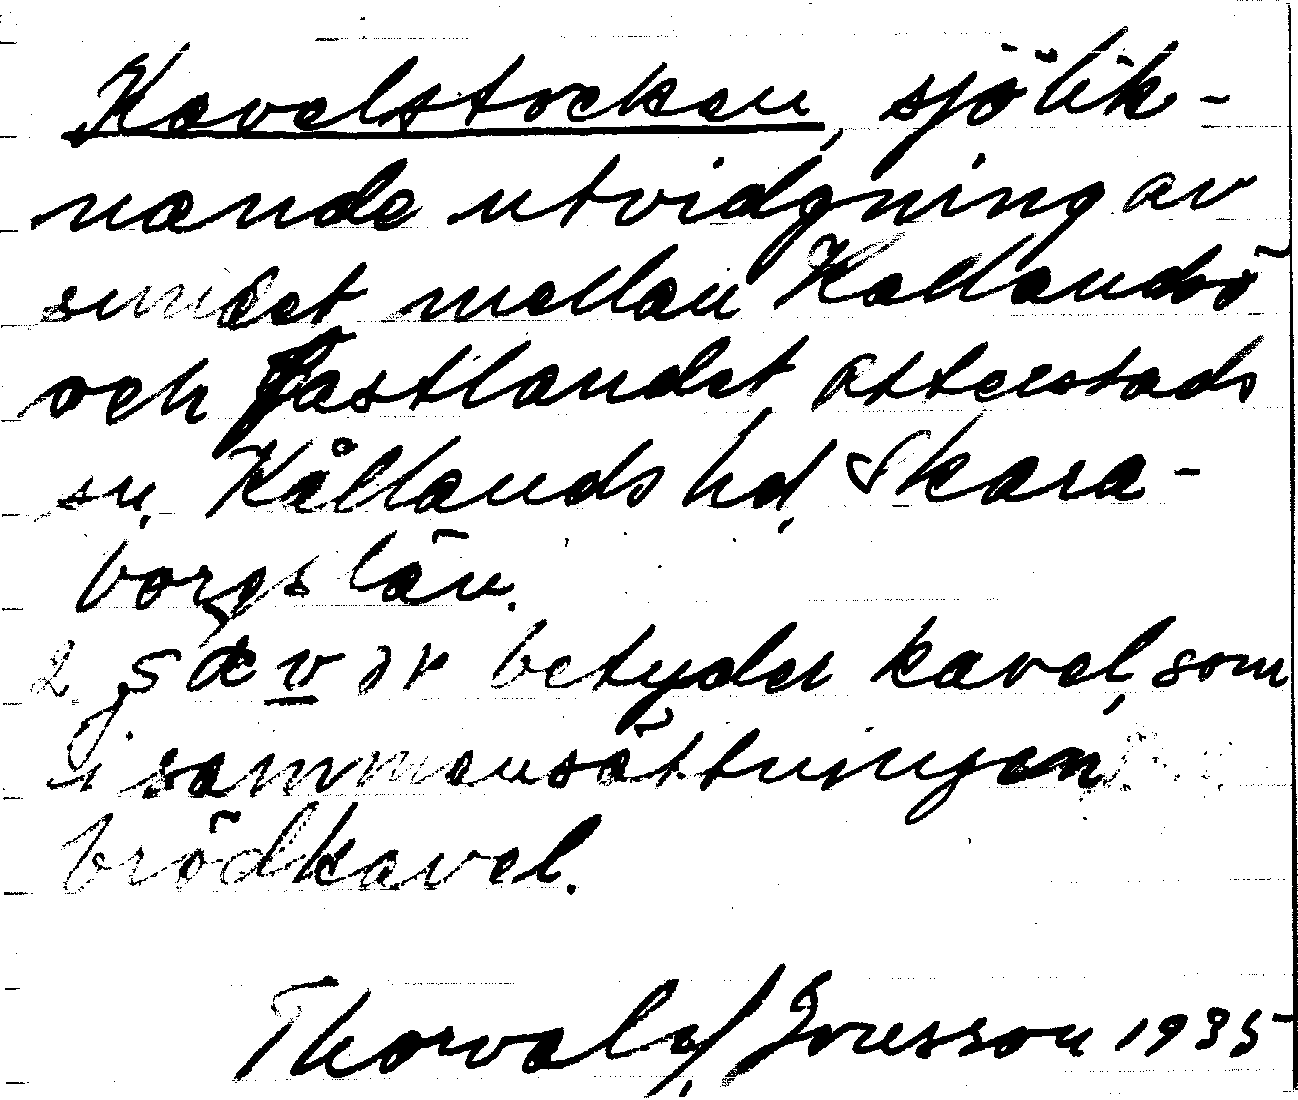 Kavelstocken, sjölik-
nande utvidgning av
sundet mellan Kållandsö
och fastlandet, Otterstads
sn, Kållands hd, Skara-
borgs län.
betyder kavel, som
i sammansättningen
brödkavel.
Thorvald Ivarsson 1935